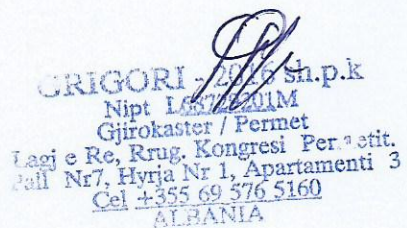 GRIGORI - 2016 sh.p.k
Nipt
Gjirokaster / Permet
Lagj e Re, Rrug. Kongresi Permetit.
Pall Nr7, Hyrja Nr 1, Apartamenti 3
Cel +355 69 576 5160
ALBANIA